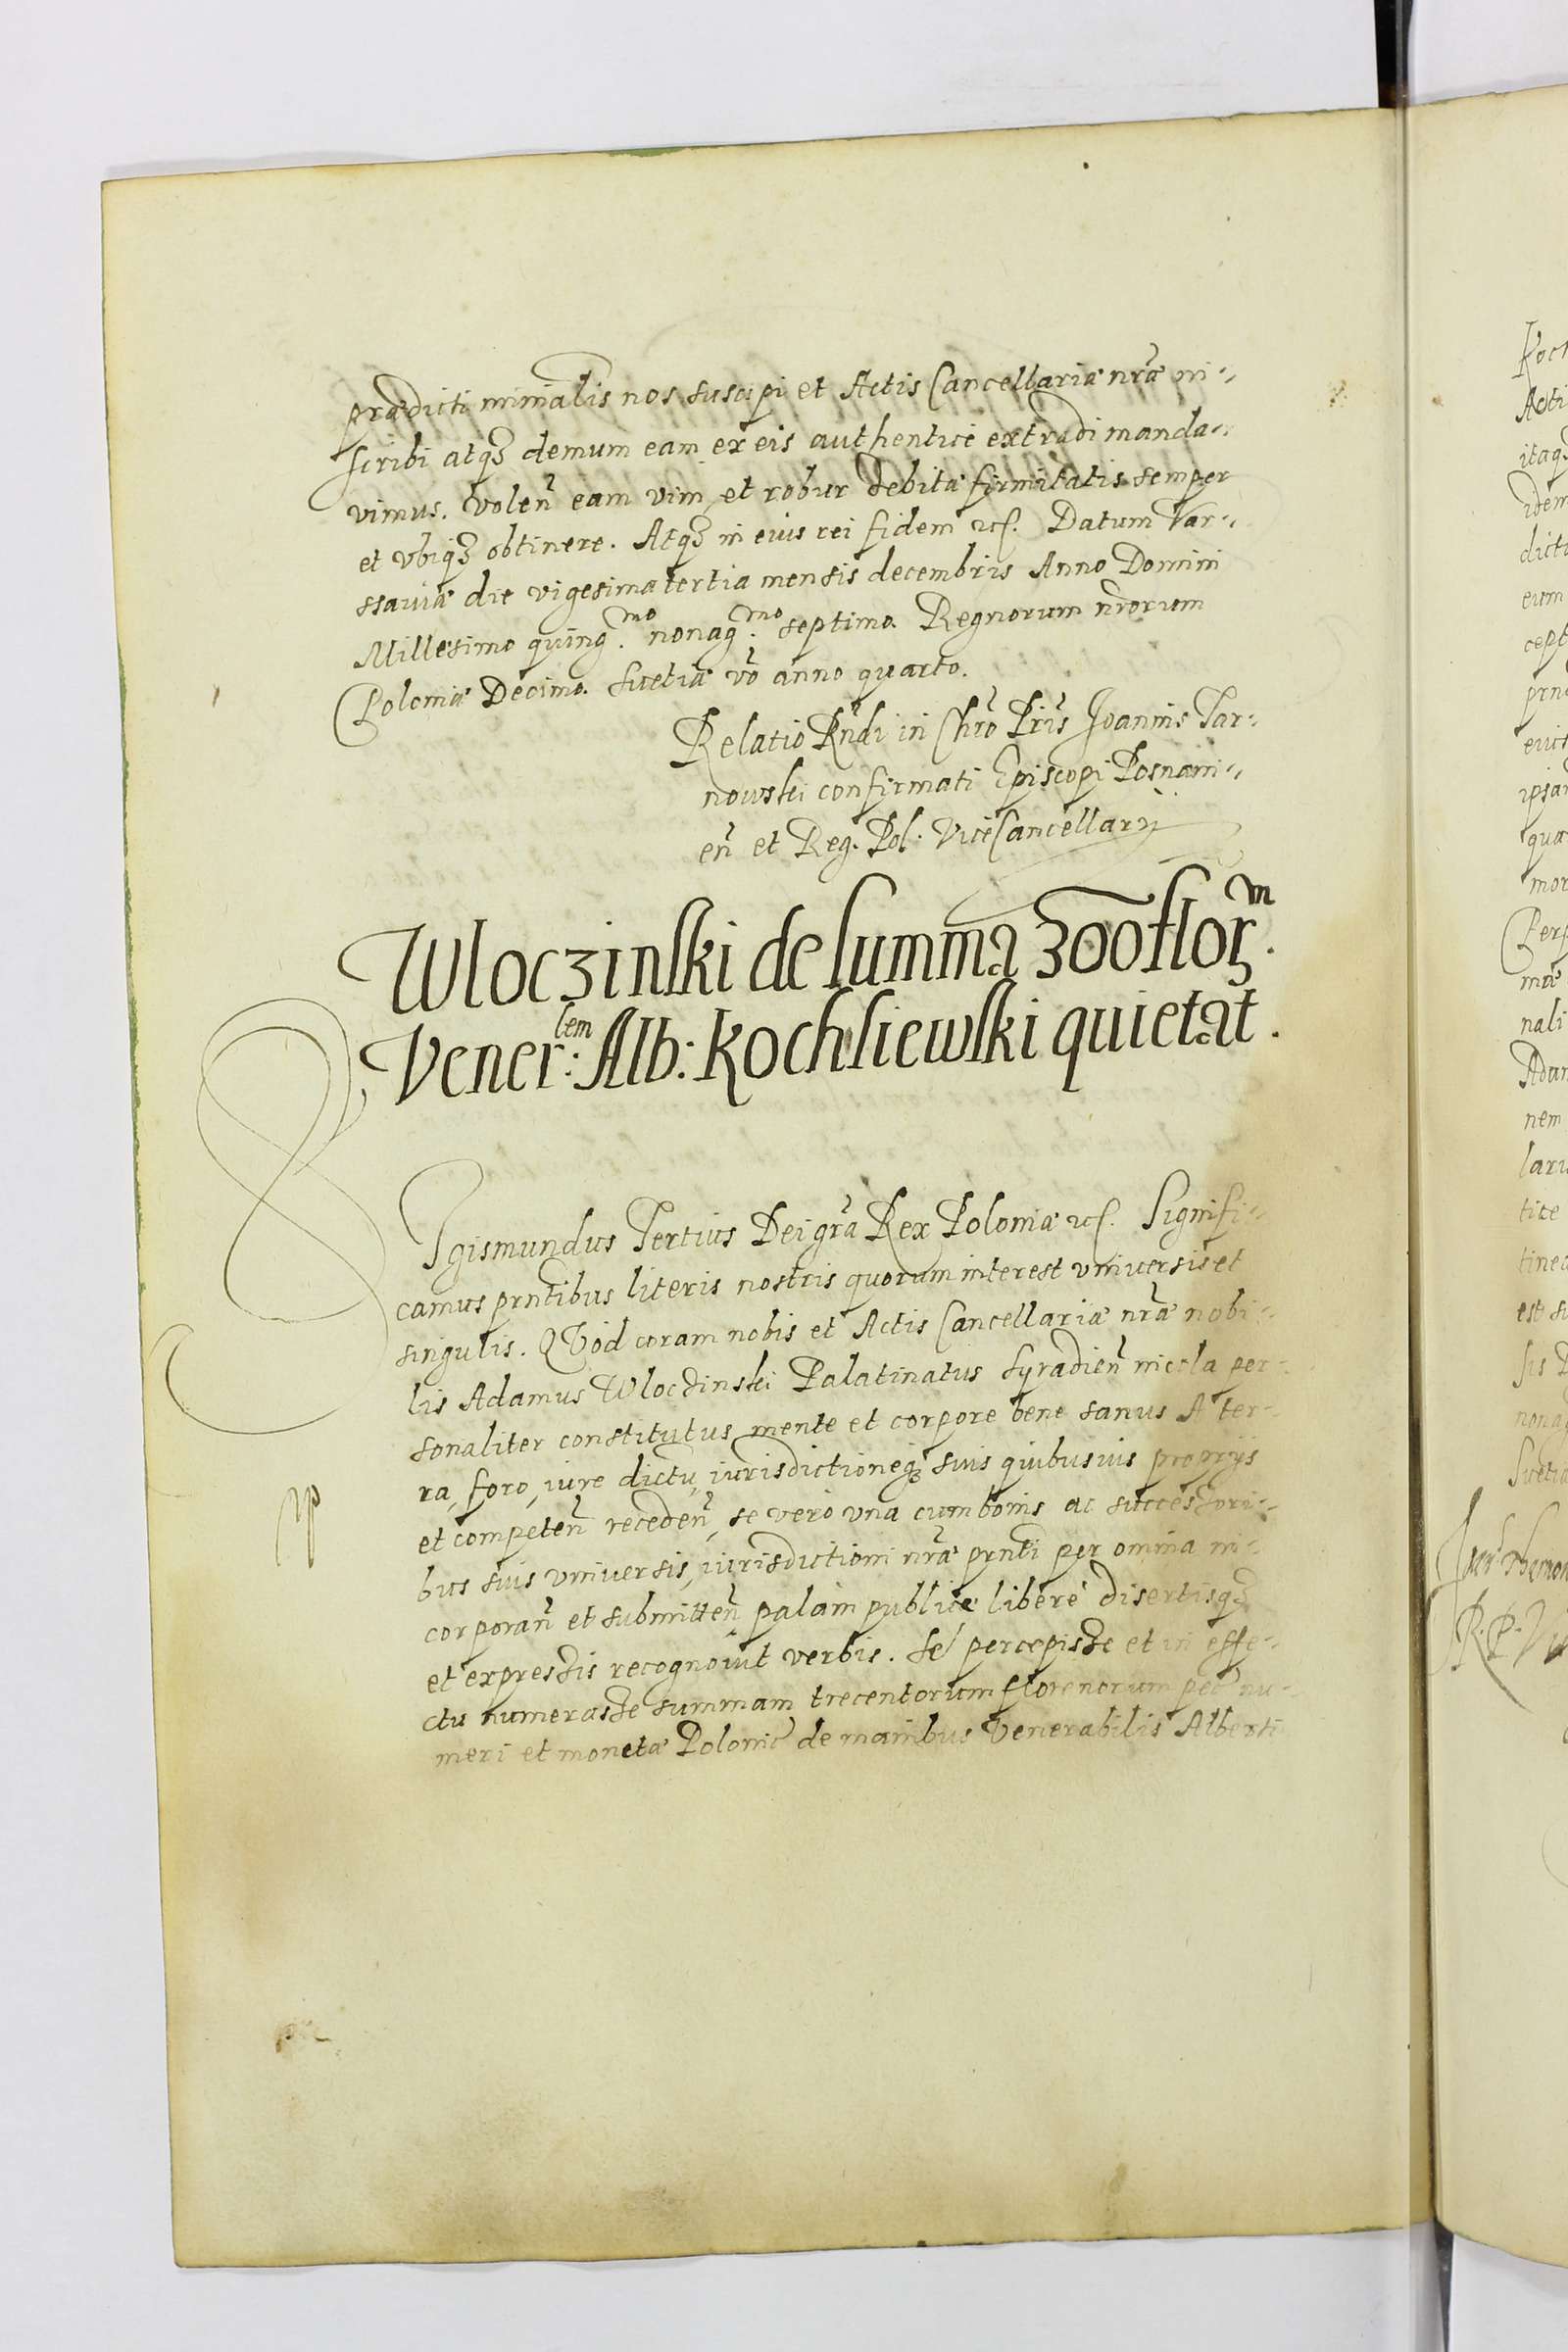 prædicti mimalis nos suscipi et Actis Cancellariæ nr̃æ in-
scribi atqꝫ demum eam ex eis authenticè extradi manda-
vimus. Volen̄ eam vim et robur debitæ firmitatis semper
et vbiqꝫ obtinere. Atqꝫ in eius rei fidem etc. Datum Var-
ssaviæ die vigesima tertia mensis decembris Anno Domini
Millesimo quing.mo nonag.mo septimo. Regnorum nr̃orum
Poloniæ Decimo. Suetiæ vō anno quarto.
Relatio Rndi in Chrō Pris Joannis Tar-
nowski confirmati Episcopi Posnani-
en̄ et Reg. Pol. ViceCancellarij
Wloczinski de summa 300 florm.
Vener:lem Alb: Kochsiewski quietat.
Sigismundus Tertius Dei grā Rex Poloniæ etc. Signifi-
camus prntibus literis nostris quorum interest vniuersis et
singulis. QVod coram nobis et Actis Cancellariæ nr̃æ nobi-
lis Adamus Wloczinski Palatinatus Syradien̄ incola per-
sonaliter constitutus mente et corpore bene sanus A ter-
ra, foro, iure dictu, iurisdictioneqꝫ suis quibusuis proprijs
et competen̄ receden̄, se vero vna cum bonis ac successori-
bus suis vniuersis, iurisdictioni nr̃æ prnti per omnia in-
corporan̄ et submitten̄ palam publicè liberè disertisqꝫ
et expressis recognouit verbis. Se percepisse et in effe-
ctu numerasse summam trecentorum florenorum pec̄ nu-
meri et monetæ Polonic̄ de manibus Venerabilis Alberti